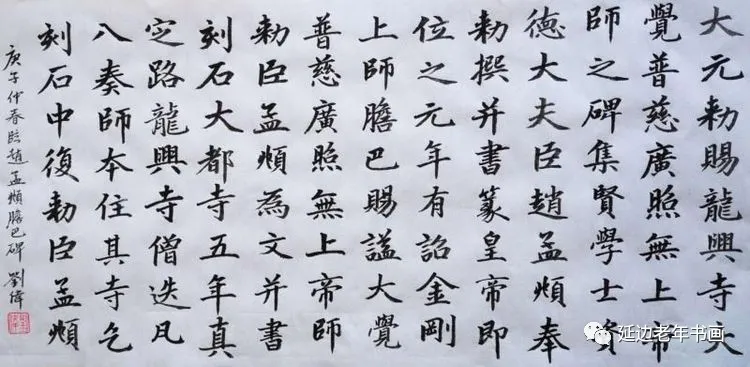 大元敕賜龍興寺大
覺普慈廣照無上帝
師之碑集賢學士資
德大夫臣趙孟頫奉
敕撰并書篆皇帝即
位之元年有詔金剛
上師膽巴賜謚大覺
普慈廣照無上帝師
敕臣孟頫為文并書
刻石大都寺五年真
定路龍興寺僧迭凡
八奏師本住其寺乞
刻石中復敕臣孟頫
庚子仲春臨趙孟頫膽巴碑 劉偉
延边老年书画